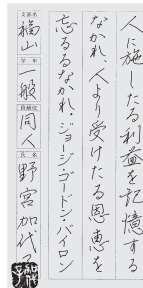 人に施したる利益を記憶する
なかれ、人より受けたる恩恵を
忘るるなかれ。ジョージ・ゴードン・バイロン
支部名
福山
学年
一般
段級位
同人
氏名
野宮加代